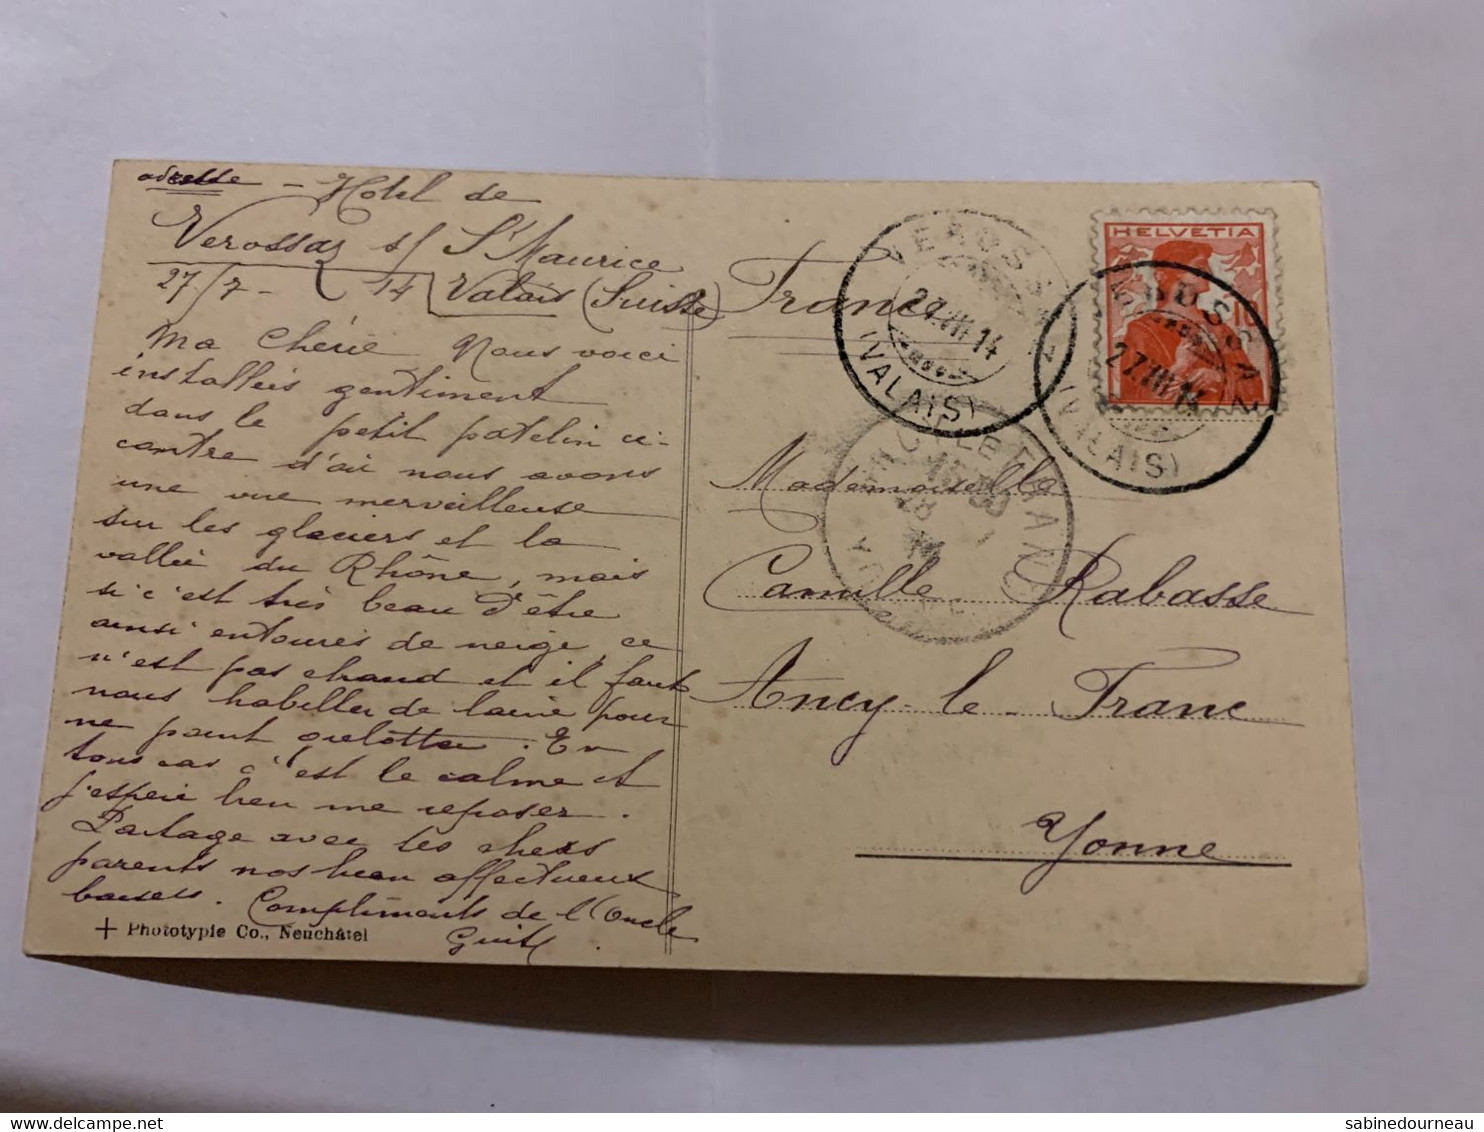 adresse - Hotel de
Verossaz s/ St Maurice
27/7 - 14 Valais (Suisse)
Ma Chérie Nous voici
installées gentiment
dans le petit patelin ci-
contre d'où nous avons
une vue merveilleuse
sur les glaciers et la
vallée du Rhône, mais
si c'est très beau d'être
ainsi entourés de neige, ce
n'est pas chaud et il faut
nous habiller de laine pour
ne point grelotter. En
tous cas c'est le calme et
j'espère bien me reposer.
Partage avec tes chers
parents nos bien affectueux
baisers. Compliments de l'Oncle
Phototypie Co., Neuchâtel
France
Mademoiselle
Camille Rabasse
Ancy-le-Franc
Yonne
HELVETIA
10
VEROSSAZ
27.VII.14
(VALAIS)
VEROSSAZ
27.VII.14
(VALAIS)
ANCY-LE-FRANC
YONNE
sabinedourneau
delcampe.net